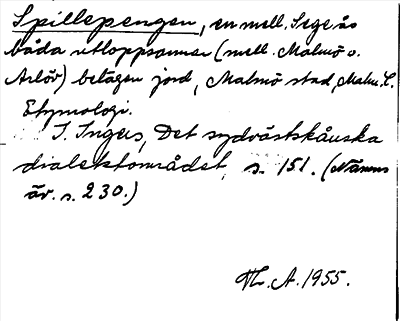 Spillepengen, en mell. Sege ås
båda utloppsarmar (mell. Malmö o.
Arlöv) belägen jord, Malmö stad, Malm. l.
Etymologi.
I. Ingers, Det sydvästskånska
dialektområdet, s. 151. (Nämns
äv. s. 230.)
Th. A. 1955.